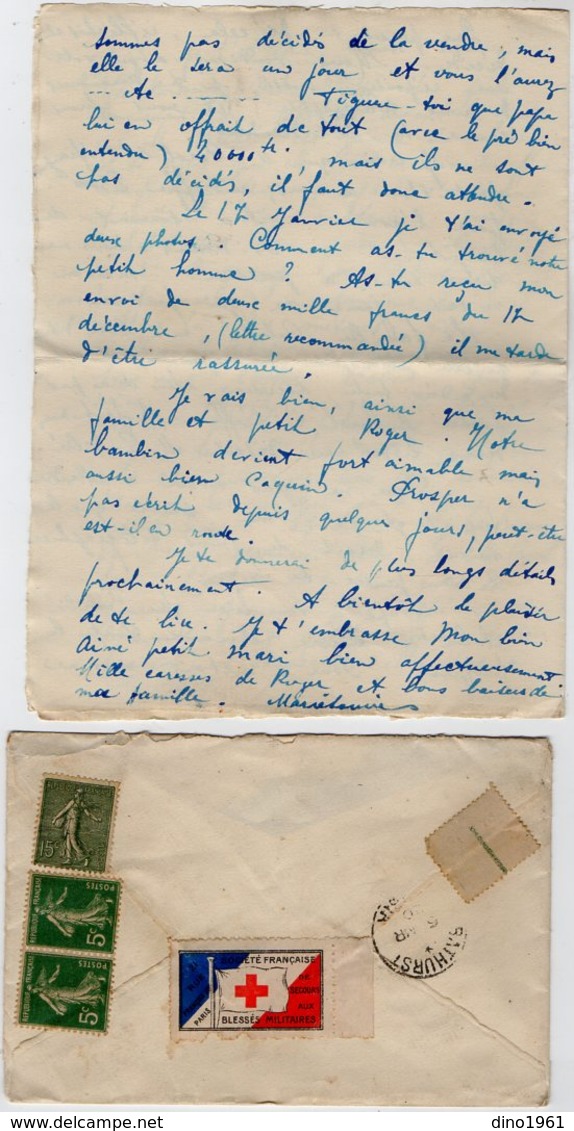 sommes pas décidés de la vendre, mais
elle le sera un jour et vous l'aurez
Figure-toi que papa
lui en offrait de tout (avec le pré bien
entendu) 40000 fr. mais ils ne sont
pas décidés, il faut donc attendre.
Le 17 Janvier je t'ai envoyé
deux photos. Comment as-tu trouvé notre
petit homme ? As-tu reçu mon
envoi de deux mille francs du 17
décembre, (lettre recommandée) il me tarde
d'être rassurée.
Je vais bien, ainsi que ma
famille et petit Roger. Notre
bambin devient fort aimable mais
aussi bien Coquin. Prosper n'a
pas écrit depuis quelque jours, peut-être
est-il en route.
Je te donnerai de plus longs détails
prochainement. A bientôt le plaisir
de te lire. Je t'embrasse Mon bien
Aimé petit mari bien affectueusement.
Mille caresses de Roger et bons baisers de
ma famille.
15c
REPUBLIQUE FRANÇAISE
POSTES
5c
REPUBLIQUE FRANÇAISE
POSTES
5c
SOCIÉTÉ FRANÇAISE
DE
SECOURS
AUX
BLESSÉS MILITAIRES
PARIS
BATHURST
dino1961